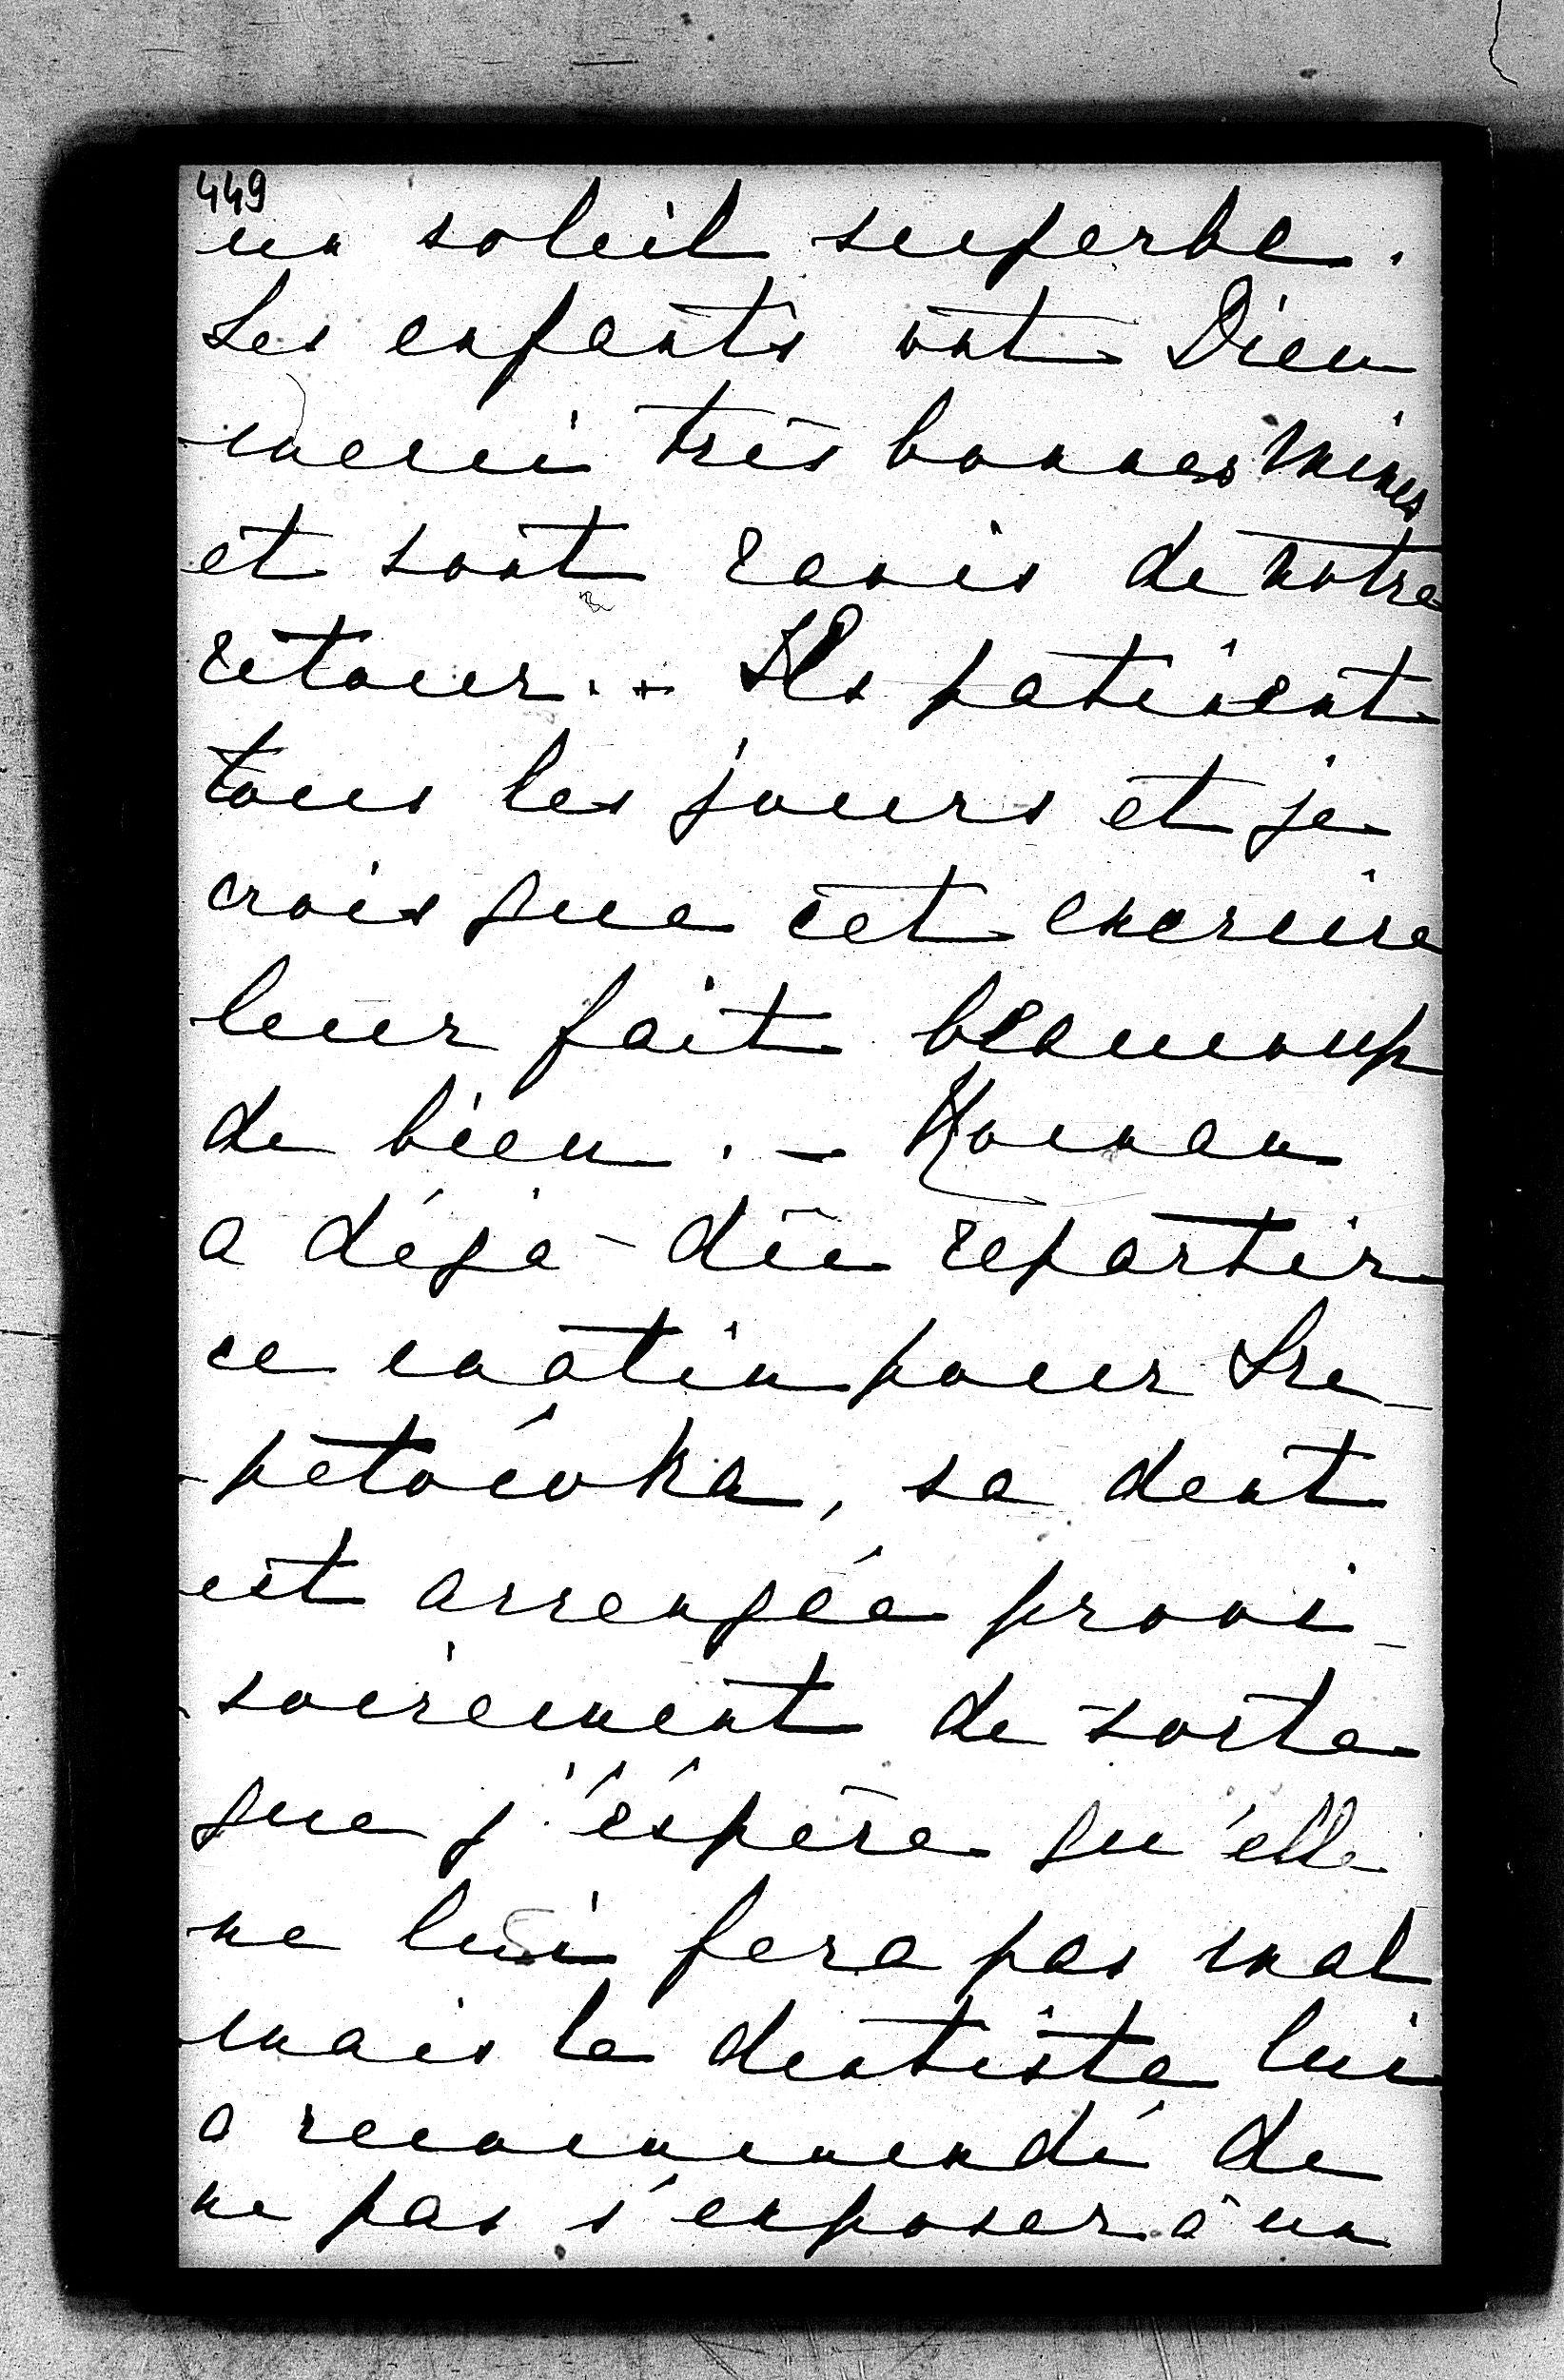 449
un soleil superbe.
Les enfants ont Dieu
merci très bonnes mines
et sont ravis de notre
retour. . Ils patinent
tous les jours et je
crois que cet exercice
leur fait beaucoup
de bien. – Roman
a déja dû repartir
ce matin pour Sre-
petovka, sa dent
est arrangée provi-
soirement de sorte
que j'éspère qu'elle
ne lui fera pas mal
mais le dentiste lui
a recommendé de
ne pas s'exposer à un